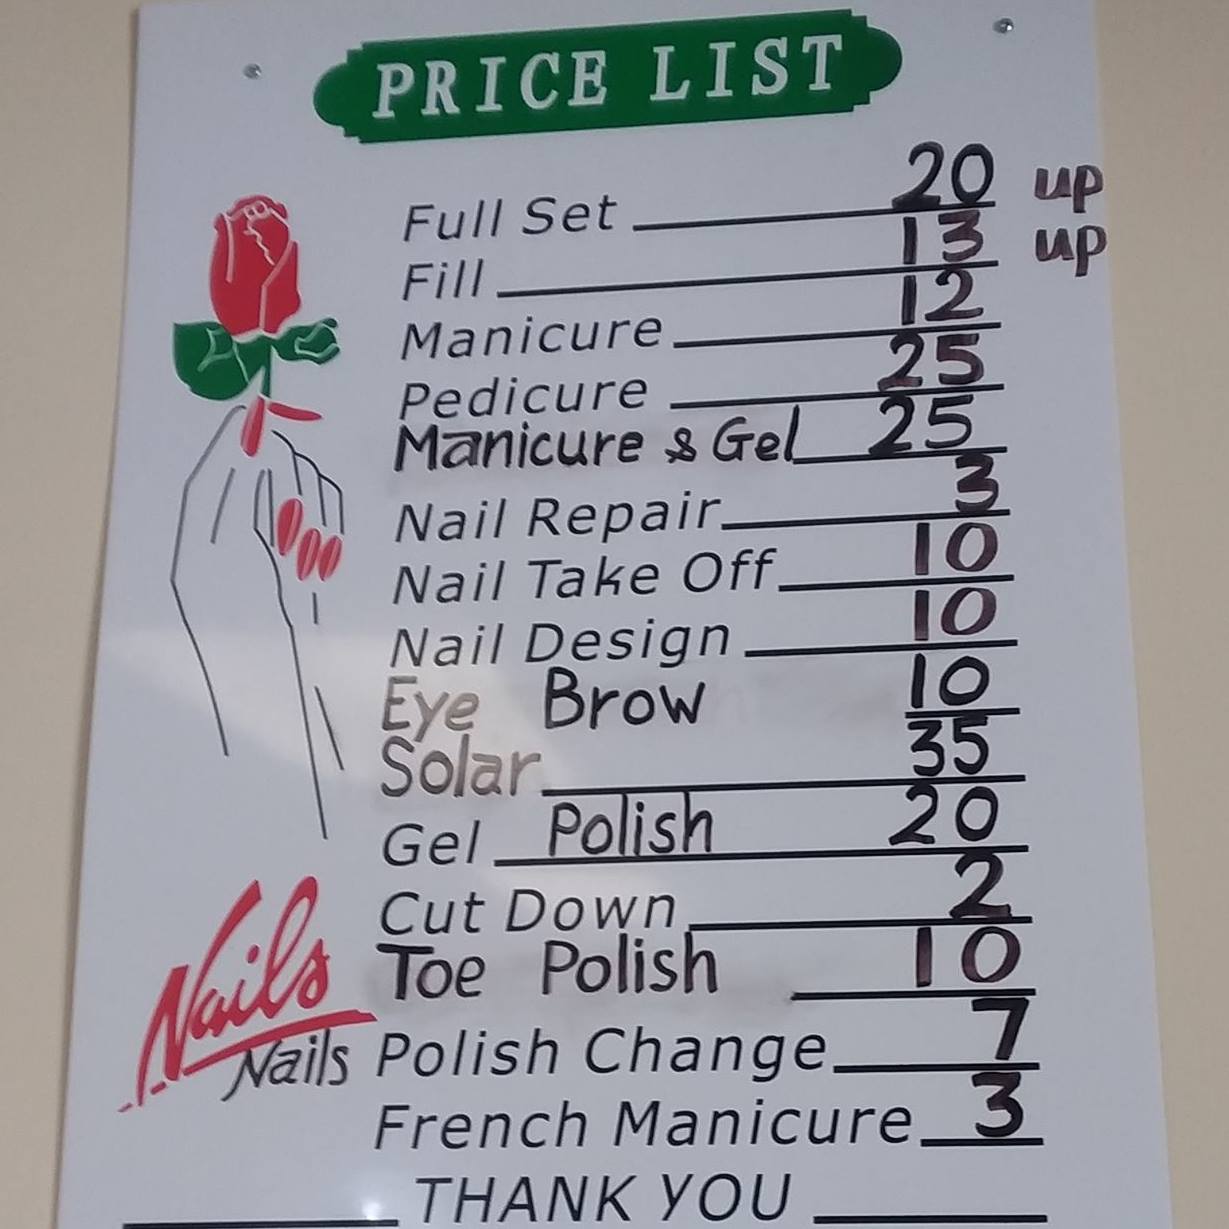 PRICE LIST
Full Set 20 up
Fill 13 up
Manicure 12
Pedicure 25
Manicure & Gel 25
Nail Repair 3
Nail Take Off 10
Nail Design 10
Eye Brow 10
Solar 35
Gel Polish 20
Cut Down 2
Toe Polish 10
Nails
Nails Polish Change 7
French Manicure 3
THANK YOU